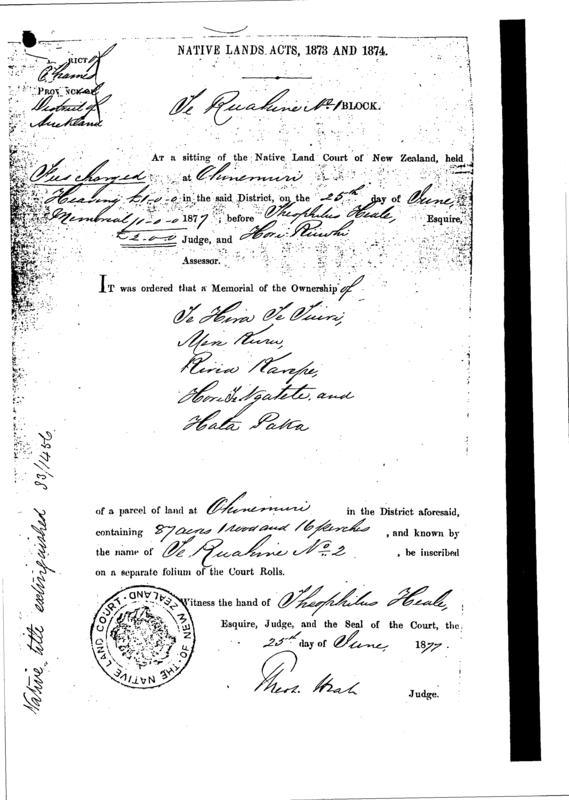 NATIVE LANDS ACTS, 1873 AND 1874.
RICT of
Thames
PROV NCE of
District of
Auckland
Te Ruahine No. 1 BLOCK.
AT a sitting of the Native Land Court of New Zealand, held
Fees charged at Ohinemuri
Hearing £1-0-0 in the said District, on the 25th day of June,
Memorial 1-0-0 1877, before Theophilus Heale, Esquire,
£2-0-0 Judge, and Hori
Assessor.
IT was ordered that a Memorial of the Ownership of
Te Hira Te Tuiri,
Mere Kuru,
Kiria Karepe,
Hori Te Ngatete and
Hata Paka
of a parcel of land at Ohinemuri in the District aforesaid,
containing 87 acres 1 rood and 16 perches, and known by
the name of Te Ruahine No. 2, be inscribed
on a separate folium of the Court Rolls.
Witness the hand of Theophilus Heale,
Esquire, Judge, and the Seal of the Court, the
25th day of June, 1877.
Theos. Heale
Judge.
SEAL OF THE NATIVE LAND COURT OF NEW ZEALAND
Native title extinguished 33/1456